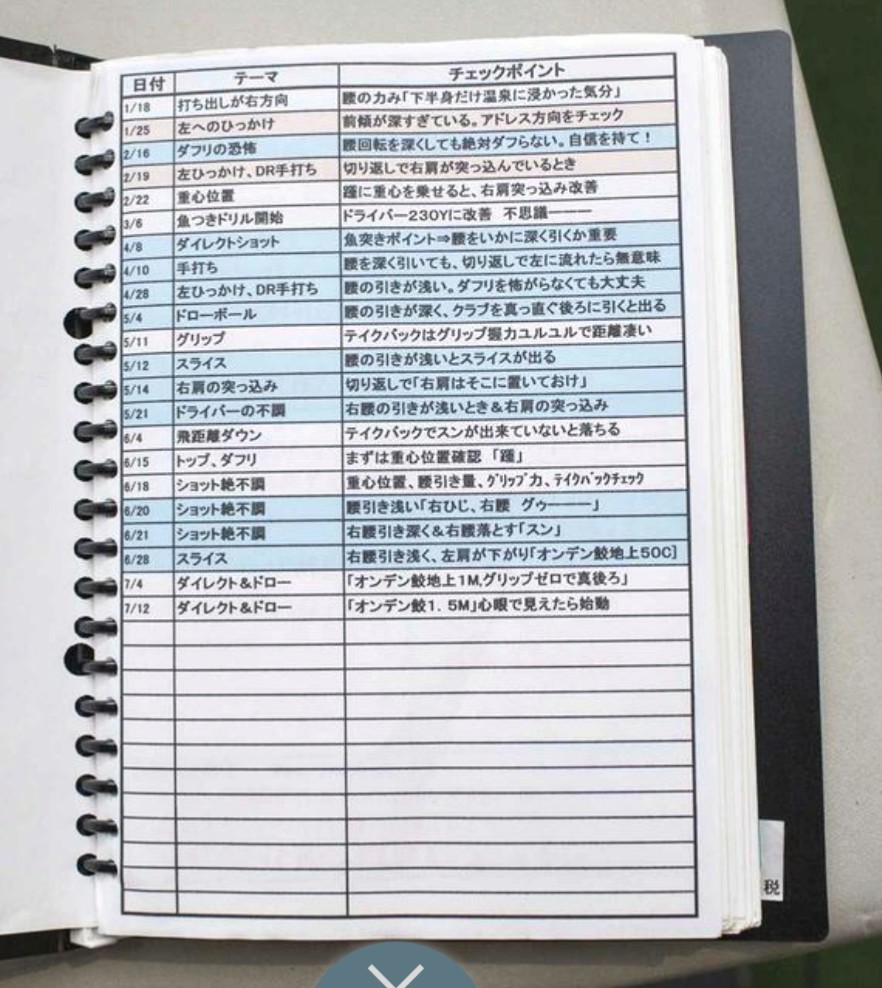 日付 テーマ チェックポイント
1/18 打ち出しが右方向 腰の力み「下半身だけ温泉に浸かった気分」
1/25 左へのひっかけ 前傾が深すぎている。アドレス方向をチェック
2/16 ダフリの恐怖 腰回転を深くしても絶対ダフらない。自信を持て！
2/19 左ひっかけ、DR手打ち 切り返しで右肩が突っ込んでいるとき
2/22 重心位置 踵に重心を乗せると、右肩突っ込み改善
3/6 魚つきドリル開始 ドライバー230Yに改善 不思議―――
4/8 ダイレクトショット 魚突きポイント⇒腰をいかに深く引くか重要
4/10 手打ち 腰を深く引いても、切り返しで左に流れたら無意味
4/28 左ひっかけ、DR手打ち 腰の引きが浅い。ダフりを怖がらなくても大丈夫
5/4 ドローボール 腰の引きが深く、クラブを真っ直ぐ後ろに引くと出る
5/11 グリップ テイクバックはグリップ握力ユルユルで距離凄い
5/12 スライス 腰の引きが浅いとスライスが出る
5/14 右肩の突っ込み 切り返しで「右肩はそこに置いておけ」
5/21 ドライバーの不調 右腰の引きが浅いとき＆右肩の突っ込み
6/4 飛距離ダウン テイクバックでスンが出来ていないと落ちる
6/15 トップ、ダフリ まずは重心位置確認 「踵」
6/18 ショット絶不調 重心位置、腰引き量、ｸﾞﾘｯﾌﾟ力、ﾃｲｸﾊﾞｯｸﾁｪｯｸ
6/20 ショット絶不調 腰引き浅い「右ひじ、右腰 グゥ―――」
6/21 ショット絶不調 右腰引き深く＆右腰落とす「スン」
6/28 スライス 右腰引き浅く、左肩が下がり「オンデン鮫地上50C]
7/4 ダイレクト＆ドロー 「オンデン鮫地上1M,グリップゼロで真後ろ」
7/12 ダイレクト＆ドロー 「オンデン鮫1．5M」心眼で見えたら始動
税